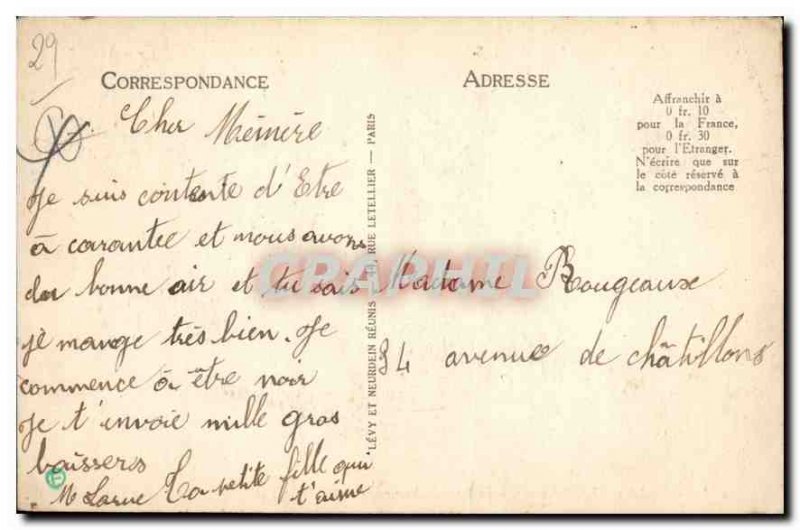 29
CORRESPONDANCE
Cher Mémére
Je suis contente d'Etre
à carantec et nous avons
du bonne air et tu sais
je mange très bien. Je
commence à être noir
Je t'envoie mille gros
baissers
M Larue Ta petite fille qui
t'aime
LÉVY ET NEURDEIN RÉUNIS 44, RUE LETELLIER — PARIS
CRAPHIL
ADRESSE
Affranchir à
0 fr. 10
pour la France,
0 fr. 30
pour l'Etranger.
N'écrire que sur
le côté réservé à
la correspondance
Madame Rougeaux
34 avenue de châtillons